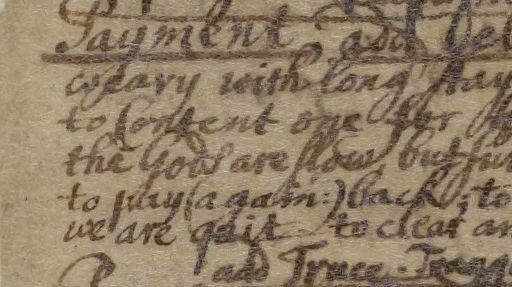 Payment add del
weary with long stay
to Content one for
the Gods are slow but sur
to pay (again:) back, to
we are quit to clear an
add Truce